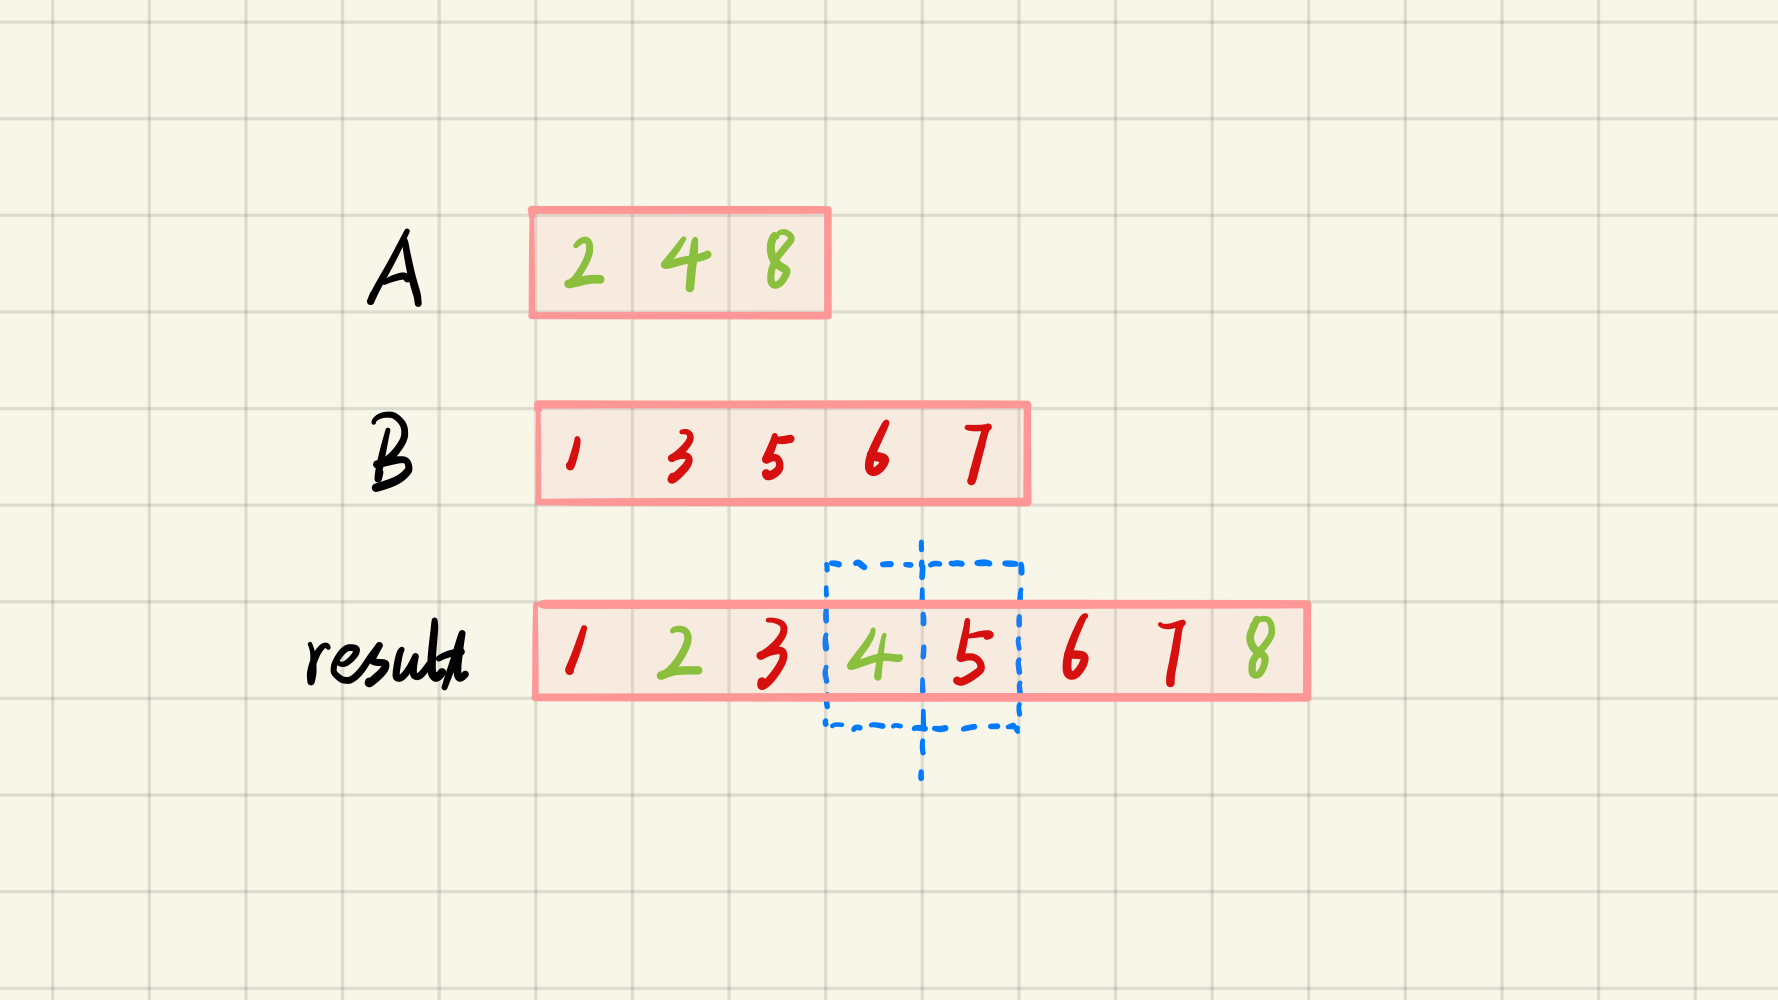 A 2 4 8
B 1 3 5 6 7
result 1 2 3 4 5 6 7 8